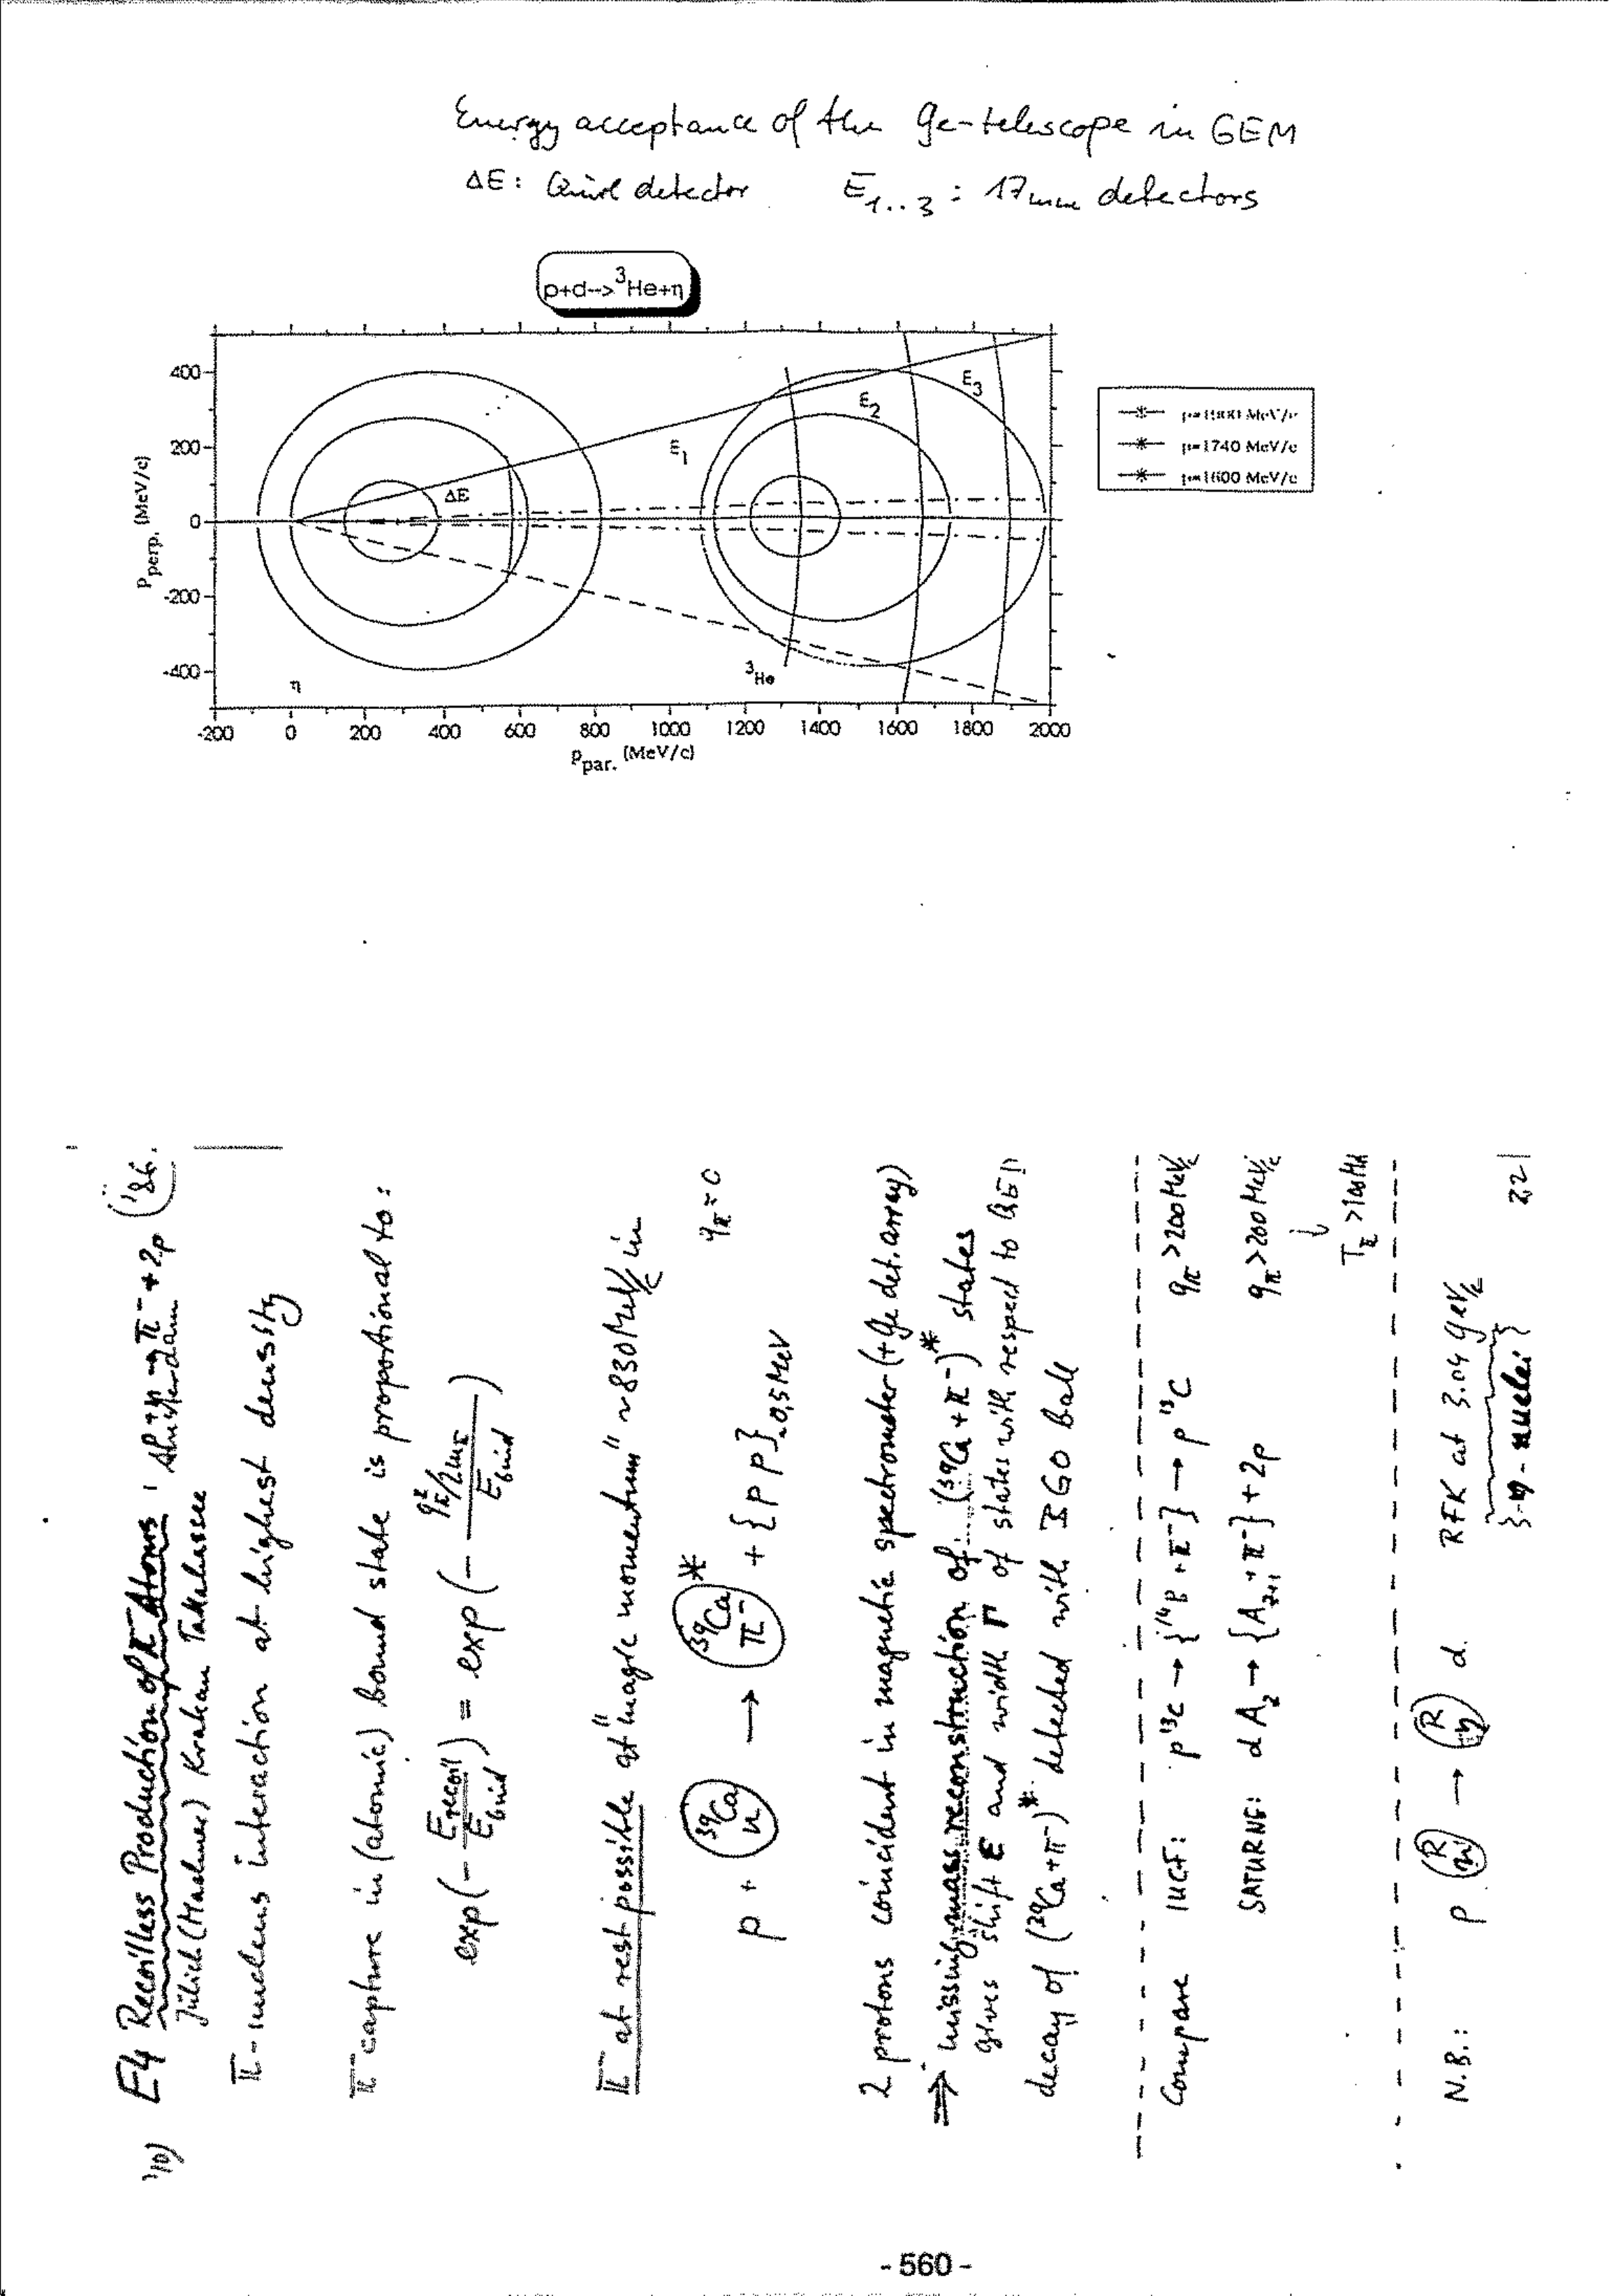 Energy acceptance of the Ge-telescope in GEM
ΔE: Quirl detector E1..3 : 17mm detectors
p+d-->³He+η
400
200
0
-200
-400
Pperp. (MeV/c)
ΔE
E1
E2
E3
η
³He
-200 0 200 400 600 800 1000 1200 1400 1600 1800 2000
Ppar. (MeV/c)
p=1740 MeV/c
p=1600 MeV/c
'10) E4 Recoilless Production of π⁻ Atoms : → π⁻ + 2p ('86.
Jülich (Machner) Krakau Tallahassee
π⁻-nucleus interaction at highest density
π⁻ capture in (atomic) bound state is proportional to:
exp(- Erecoil/Ebind) = exp(- qπ²/2mπ / Ebind)
π⁻ at rest possible at "magic momentum" ~830MeV/c in
p + (³⁹Ca n) → (³⁹Ca π⁻)* + {pp}~0,5MeV qπ=0
2 protons coincident in magnetic spectrometer (+Ge det. array)
⇒ missing mass reconstruction of (³⁹Ca + π⁻)* states
gives shift ε and width Γ of states with respect to QED
decay of (³⁹Ca+π⁻)* detected with BGO Ball
Compare IUCF: p ¹³C → {¹⁴B + π⁻} → p ¹³C qπ >200MeV/c
SATURNE: d Az → {Az+1 + π⁻} + 2p qπ >200MeV/c
↓
Tπ >100MeV
N.B.: p (R n) → (R η) d. RFK at 3.04 GeV/c
}-η-nuclei}
221
- 560 -